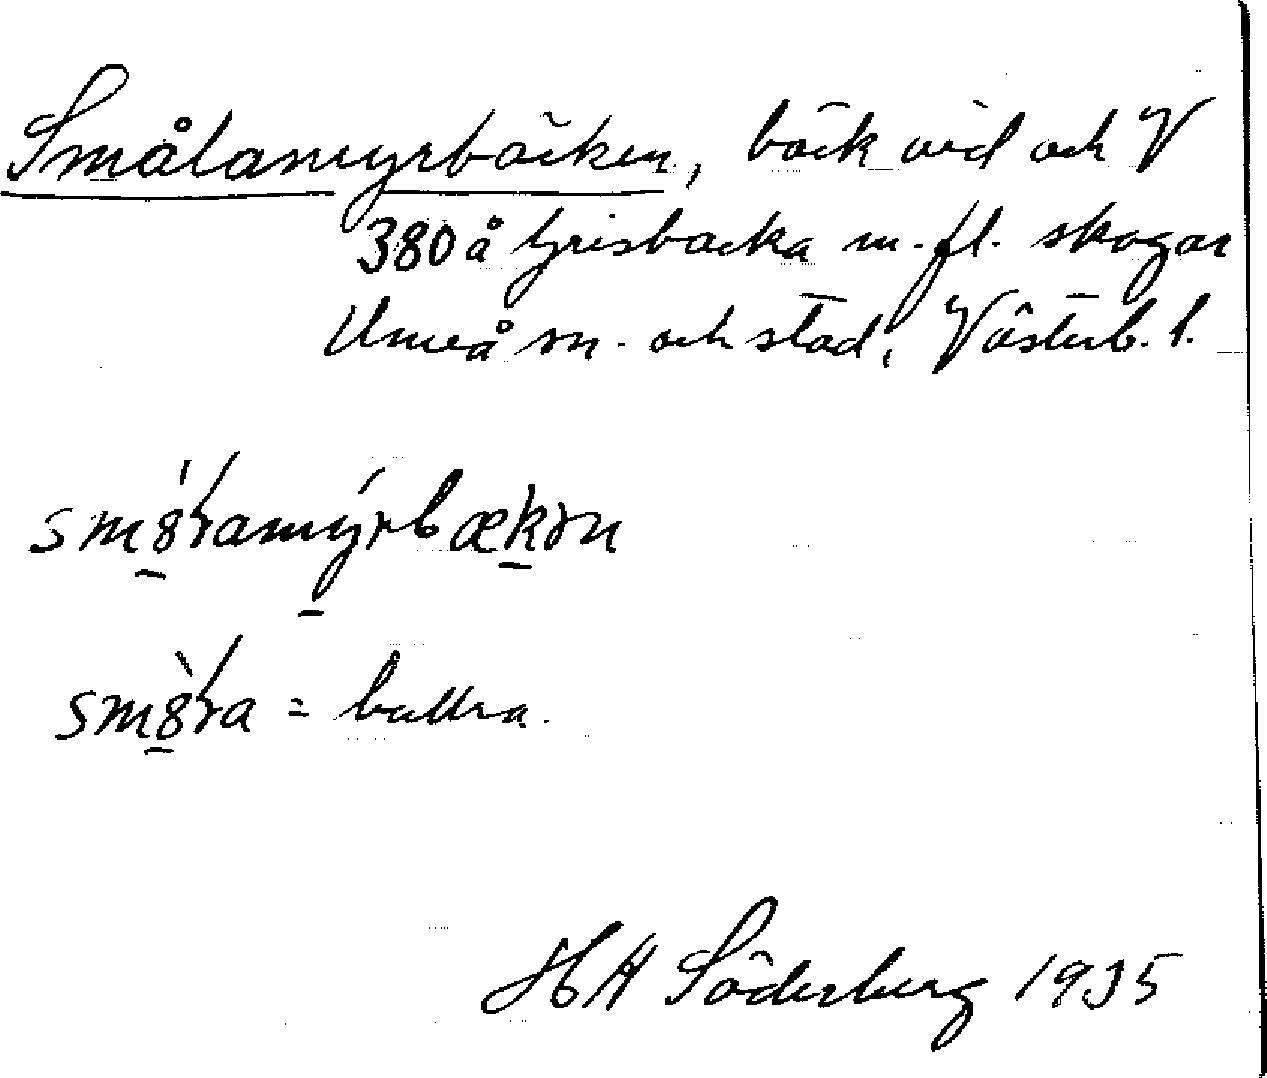 Smålamyrbäcken, bäck vid och V
380 å Grisbacka m. fl. skogar
Umeå sn. och stad, Västerb. l.
= bullra.
HH Söderberg 1935